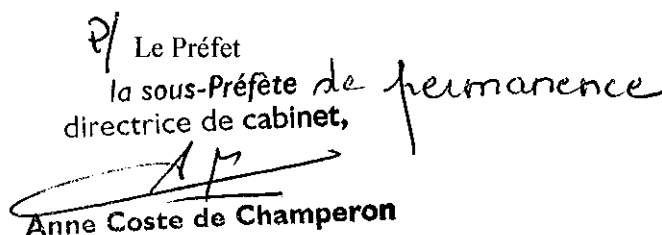 P/ Le Préfet
la sous-Préfète de permanence
directrice de cabinet,
Anne Coste de Champeron